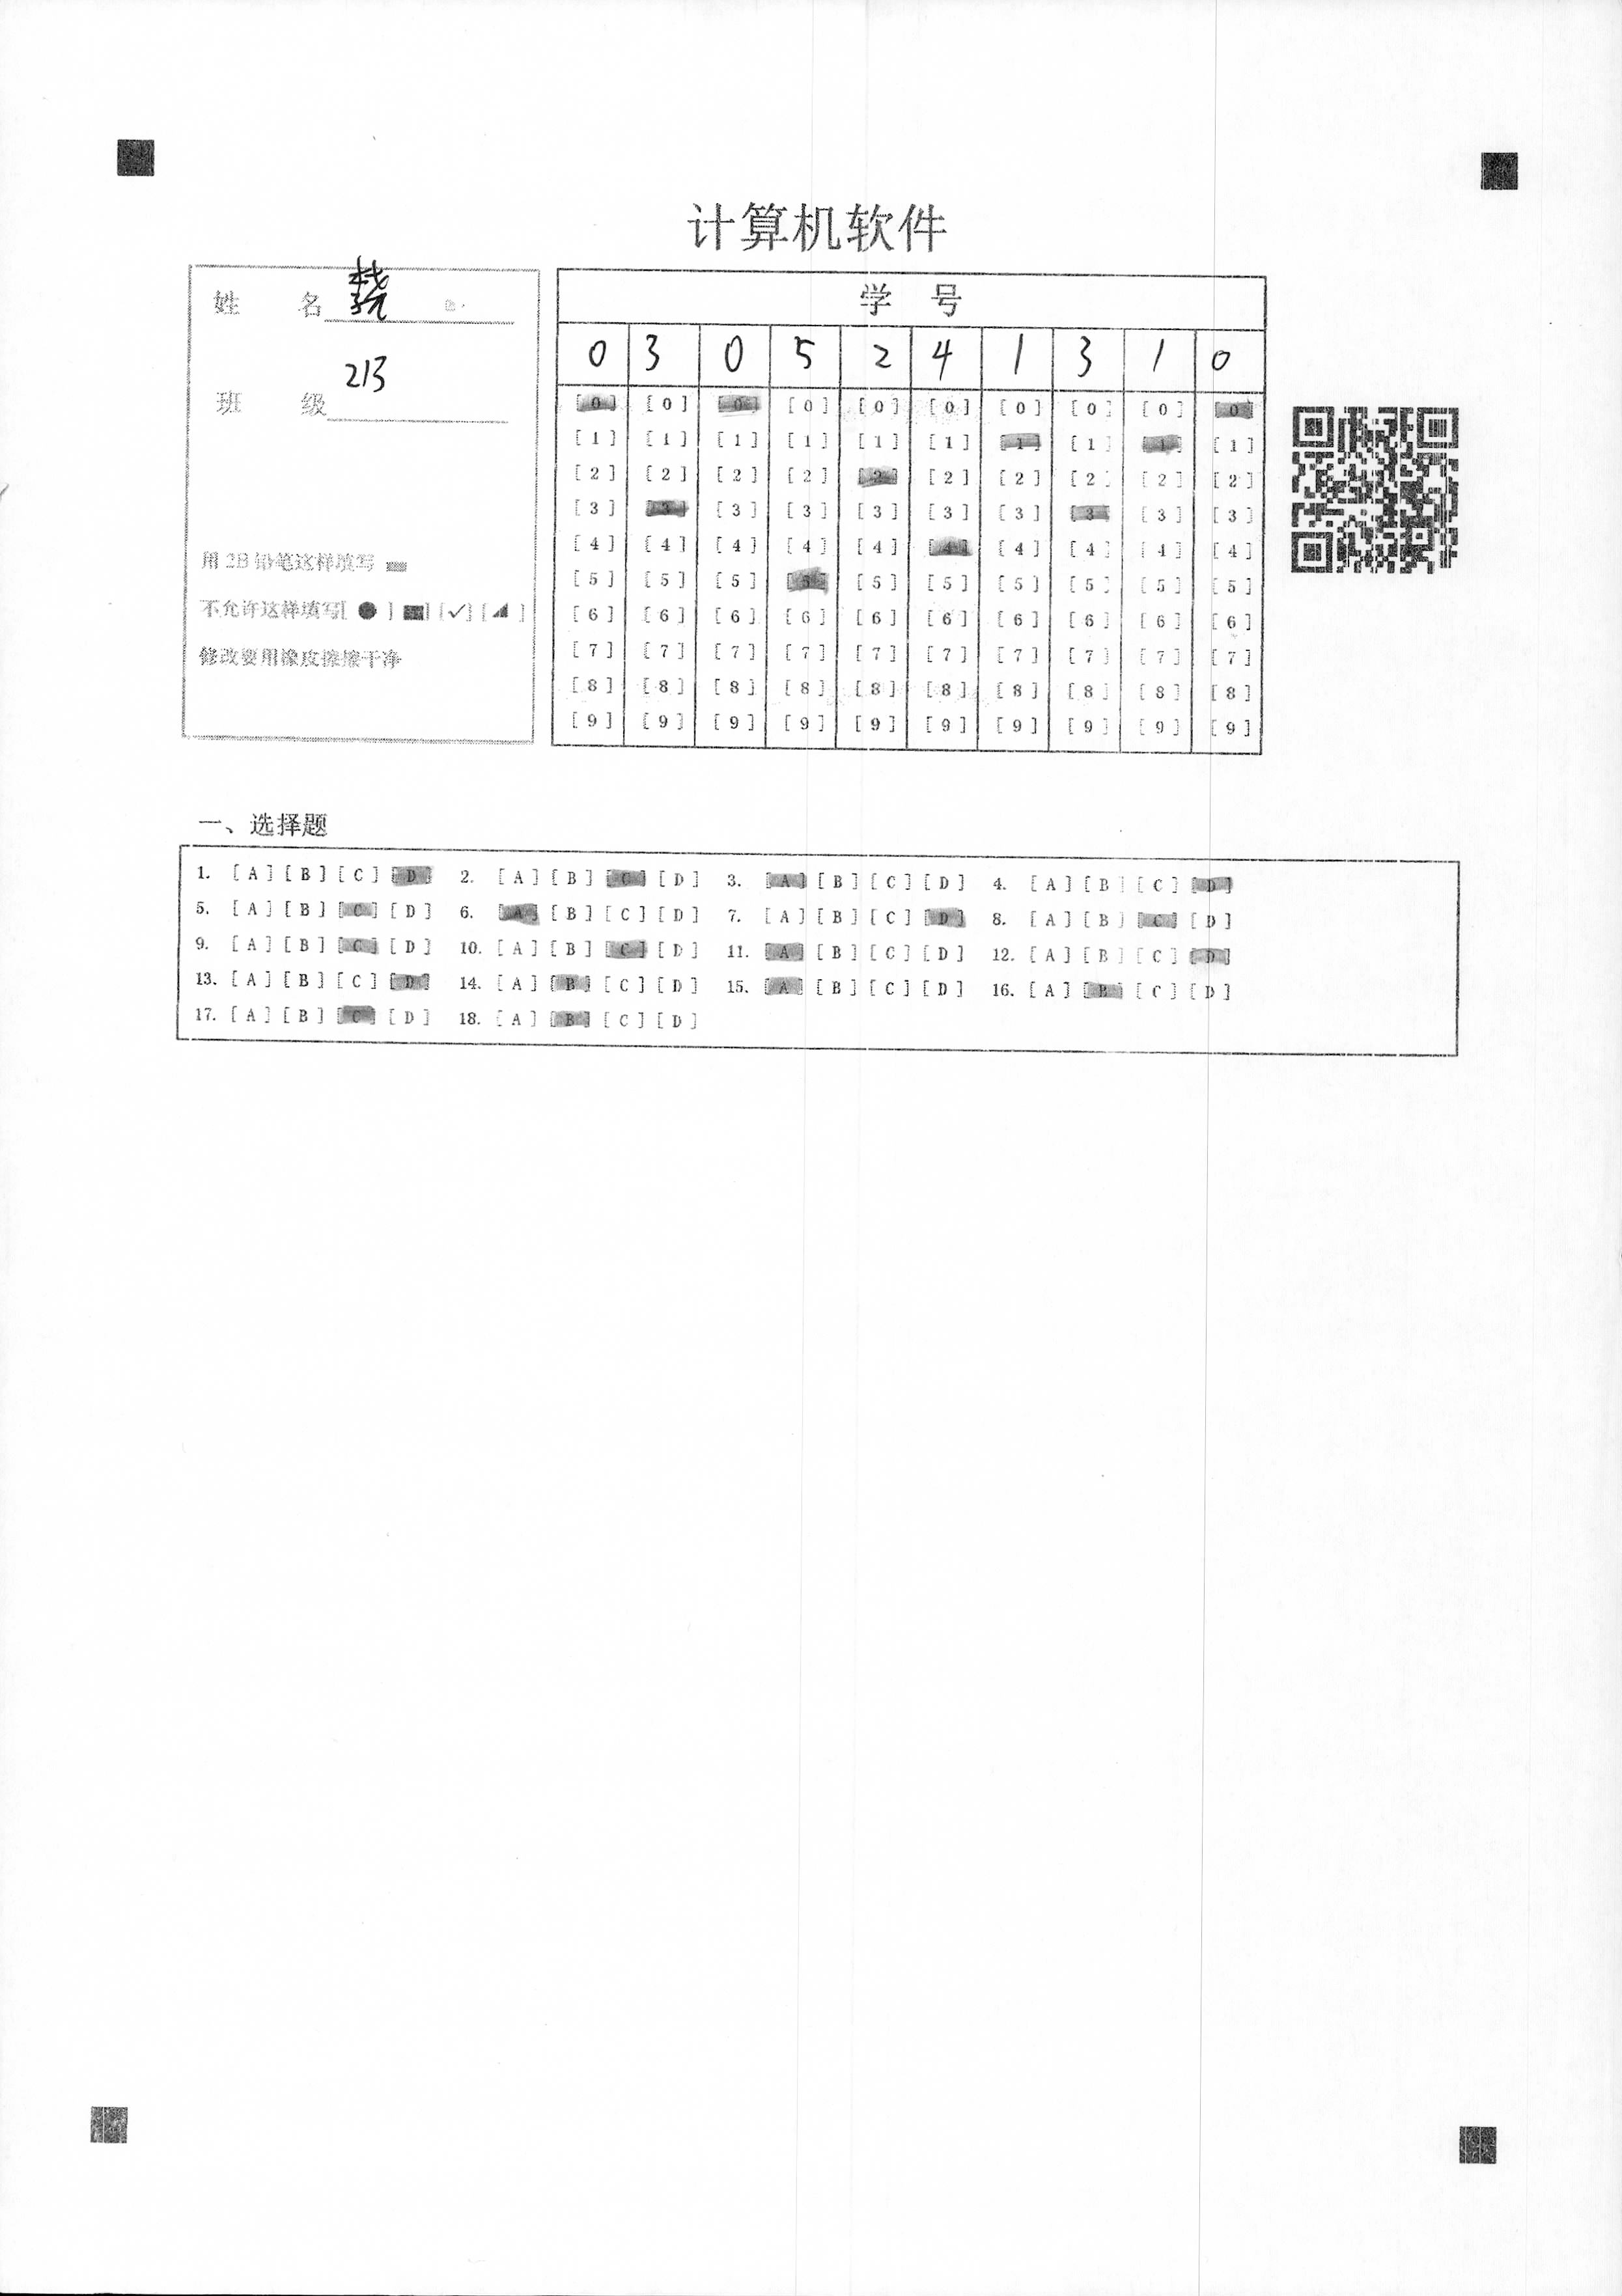 计算机软件
姓 名
班 级 213
用 2B 铅笔这样填写
不允许这样填写[ ● ] [■] [✓] [◢ ]
修改要用橡皮擦擦干净
学 号
0 3 0 5 2 4 1 3 1 0
[0] [0] [0] [0] [0] [0] [0] [0] [0] [0]
[1] [1] [1] [1] [1] [1] [1] [1] [1] [1]
[2] [2] [2] [2] [2] [2] [2] [2] [2] [2]
[3] [3] [3] [3] [3] [3] [3] [3] [3] [3]
[4] [4] [4] [4] [4] [4] [4] [4] [4] [4]
[5] [5] [5] [5] [5] [5] [5] [5] [5] [5]
[6] [6] [6] [6] [6] [6] [6] [6] [6] [6]
[7] [7] [7] [7] [7] [7] [7] [7] [7] [7]
[8] [8] [8] [8] [8] [8] [8] [8] [8] [8]
[9] [9] [9] [9] [9] [9] [9] [9] [9] [9]
一、选择题
1. [A] [B] [C] [D] 2. [A] [B] [C] [D] 3. [A] [B] [C] [D] 4. [A] [B] [C] [D]
5. [A] [B] [C] [D] 6. [A] [B] [C] [D] 7. [A] [B] [C] [D] 8. [A] [B] [C] [D]
9. [A] [B] [C] [D] 10. [A] [B] [C] [D] 11. [A] [B] [C] [D] 12. [A] [B] [C] [D]
13. [A] [B] [C] [D] 14. [A] [B] [C] [D] 15. [A] [B] [C] [D] 16. [A] [B] [C] [D]
17. [A] [B] [C] [D] 18. [A] [B] [C] [D]